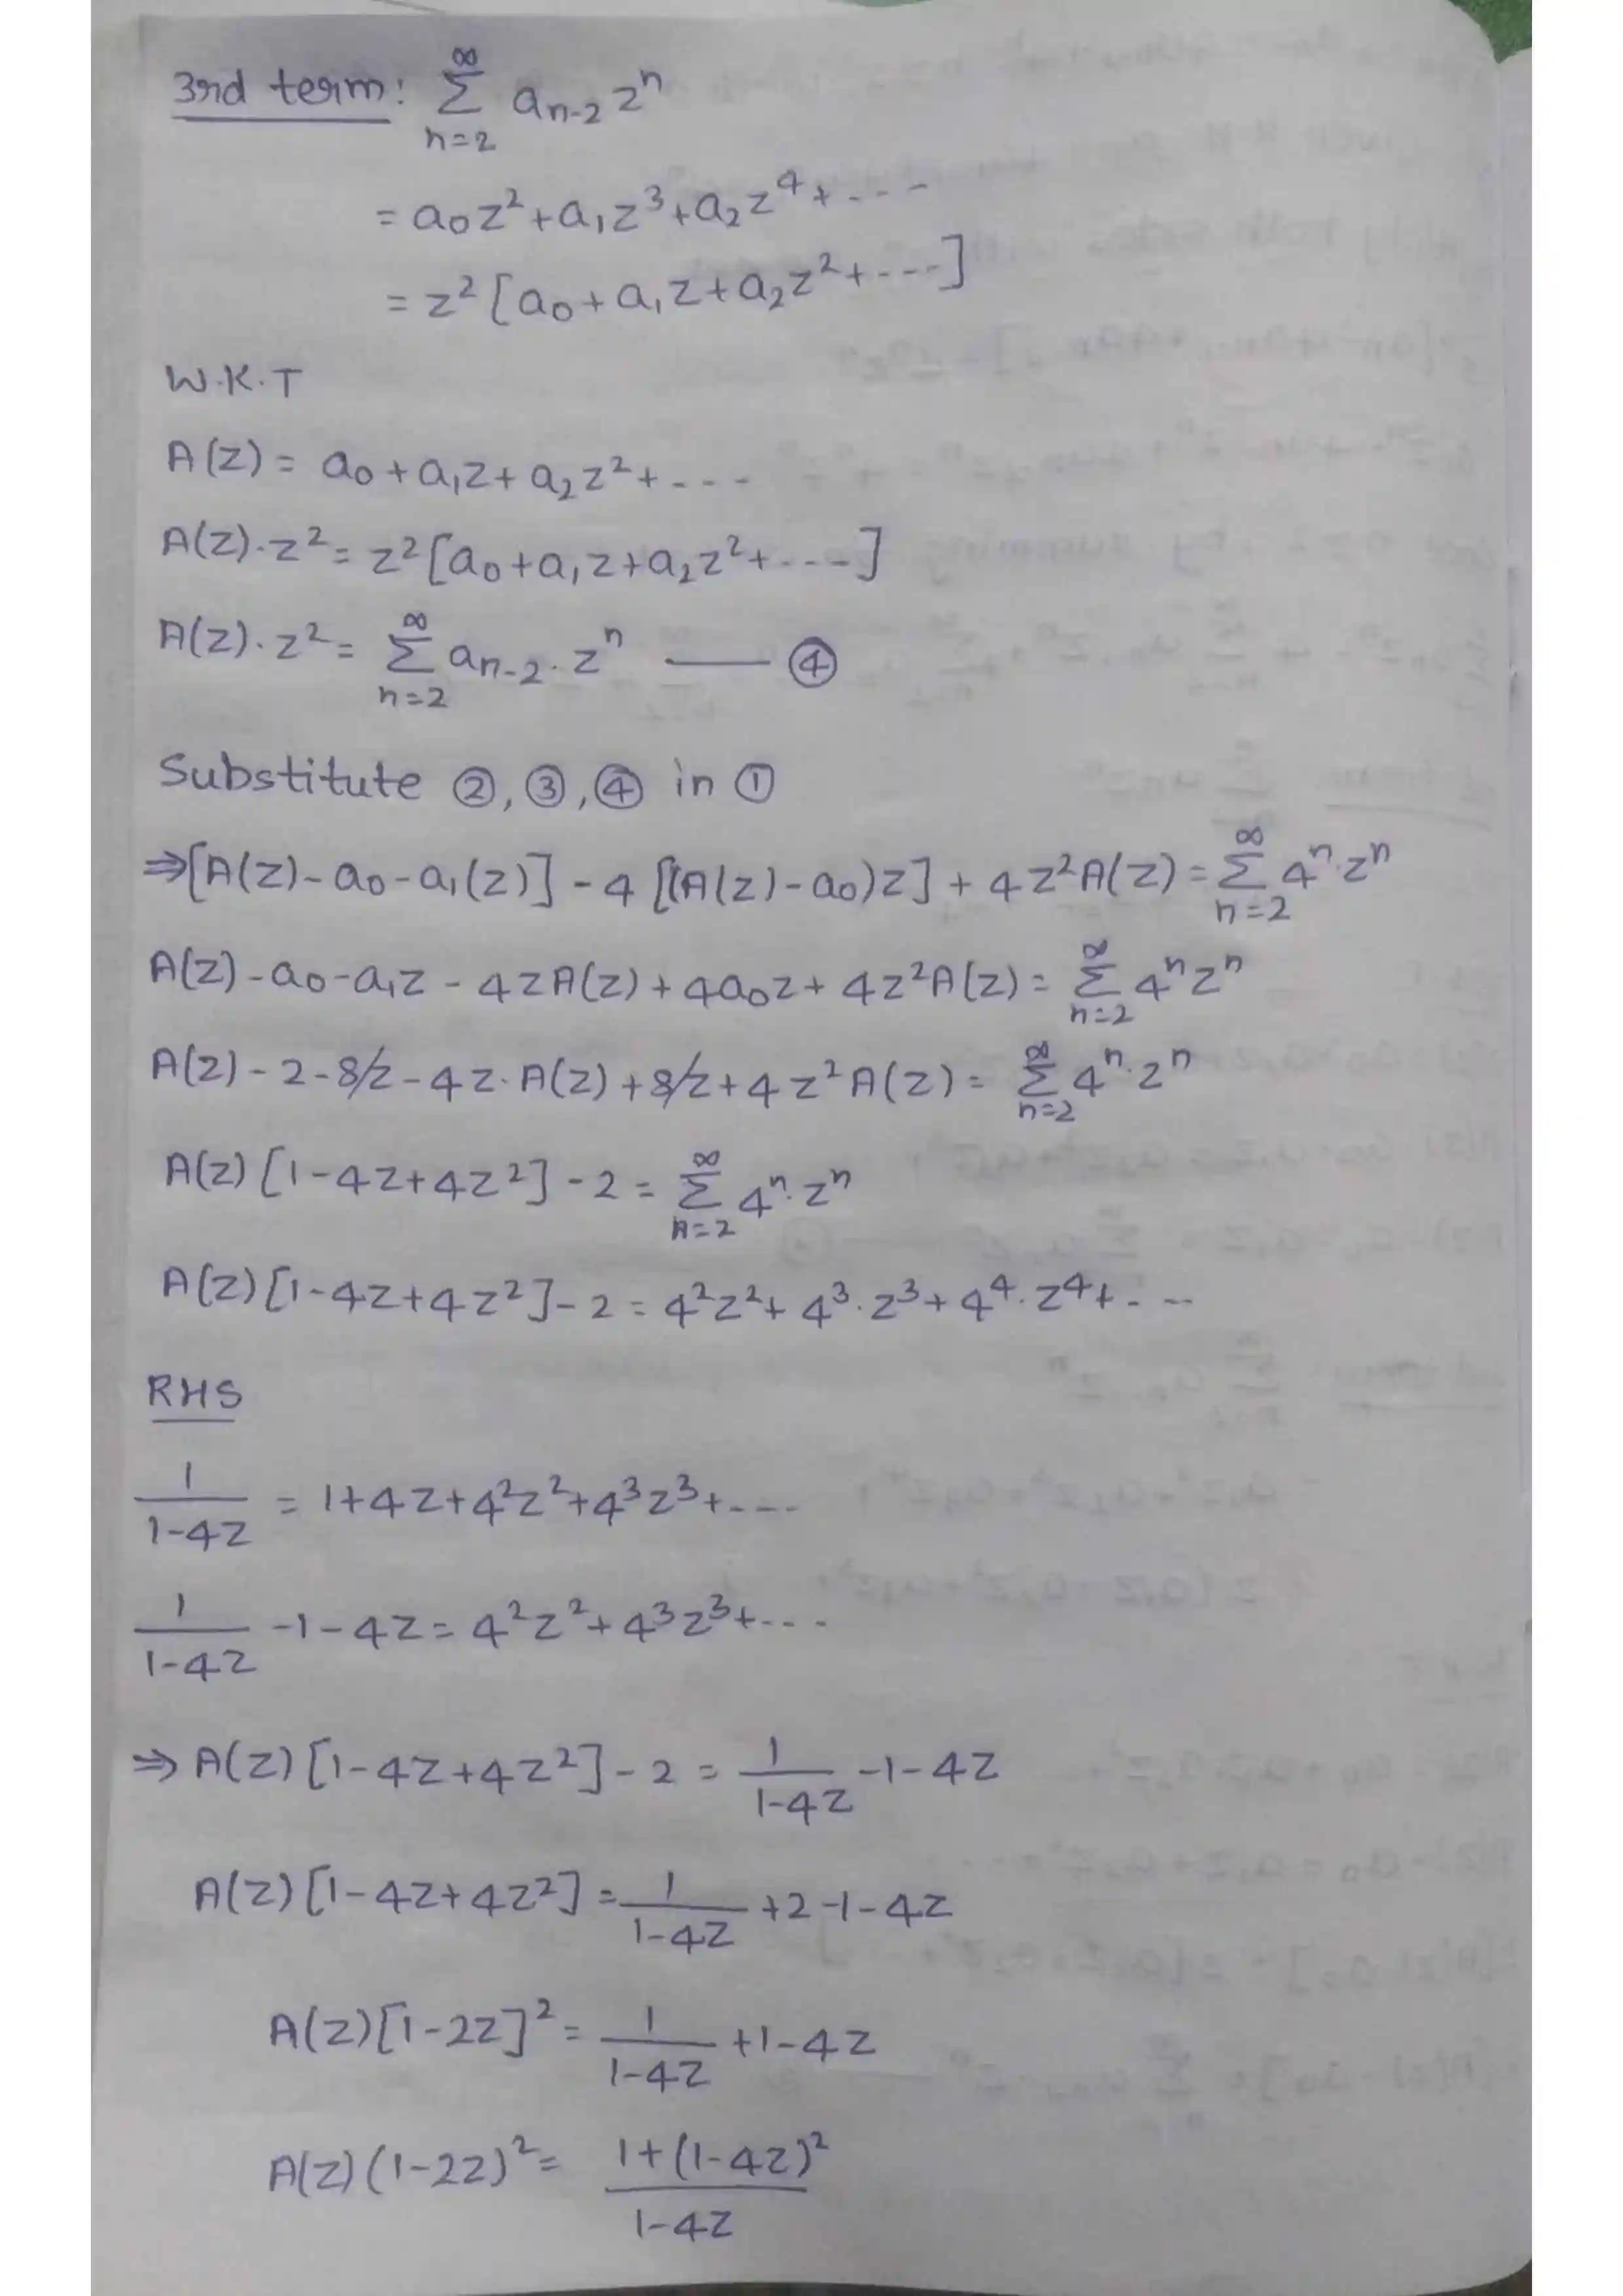 3rd term: ∞Σn=2 aₙ₋₂ zⁿ
= a₀z² + a₁z³ + a₂z⁴ + ---
= z² [a₀ + a₁z + a₂z² + ---]
W.K.T
A(z) = a₀ + a₁z + a₂z² + ---
A(z).z² = z² [a₀ + a₁z + a₂z² + ---]
A(z).z² = ∞Σn=2 aₙ₋₂.zⁿ — ④
Substitute ②, ③, ④ in ①
⇒ [A(z) - a₀ - a₁(z)] - 4 [(A(z) - a₀)z] + 4z²A(z) = ∞Σn=2 4ⁿ.zⁿ
A(z) - a₀ - a₁z - 4zA(z) + 4a₀z + 4z²A(z) = ∞Σn=2 4ⁿzⁿ
A(z) - 2 - 8z - 4z.A(z) + 8z + 4z²A(z) = ∞Σn=2 4ⁿ.zⁿ
A(z) [1 - 4z + 4z²] - 2 = ∞Σn=2 4ⁿ.zⁿ
A(z) [1 - 4z + 4z²] - 2 = 4²z² + 4³.z³ + 4⁴.z⁴ + ---
RHS
1/(1-4z) = 1 + 4z + 4²z² + 4³z³ + ----
1/(1-4z) - 1 - 4z = 4²z² + 4³z³ + ----
⇒ A(z) [1 - 4z + 4z²] - 2 = 1/(1-4z) - 1 - 4z
A(z) [1 - 4z + 4z²] = 1/(1-4z) + 2 - 1 - 4z
A(z) [1 - 2z]² = 1/(1-4z) + 1 - 4z
A(z) (1 - 2z)² = (1 + (1-4z)²)/(1-4z)